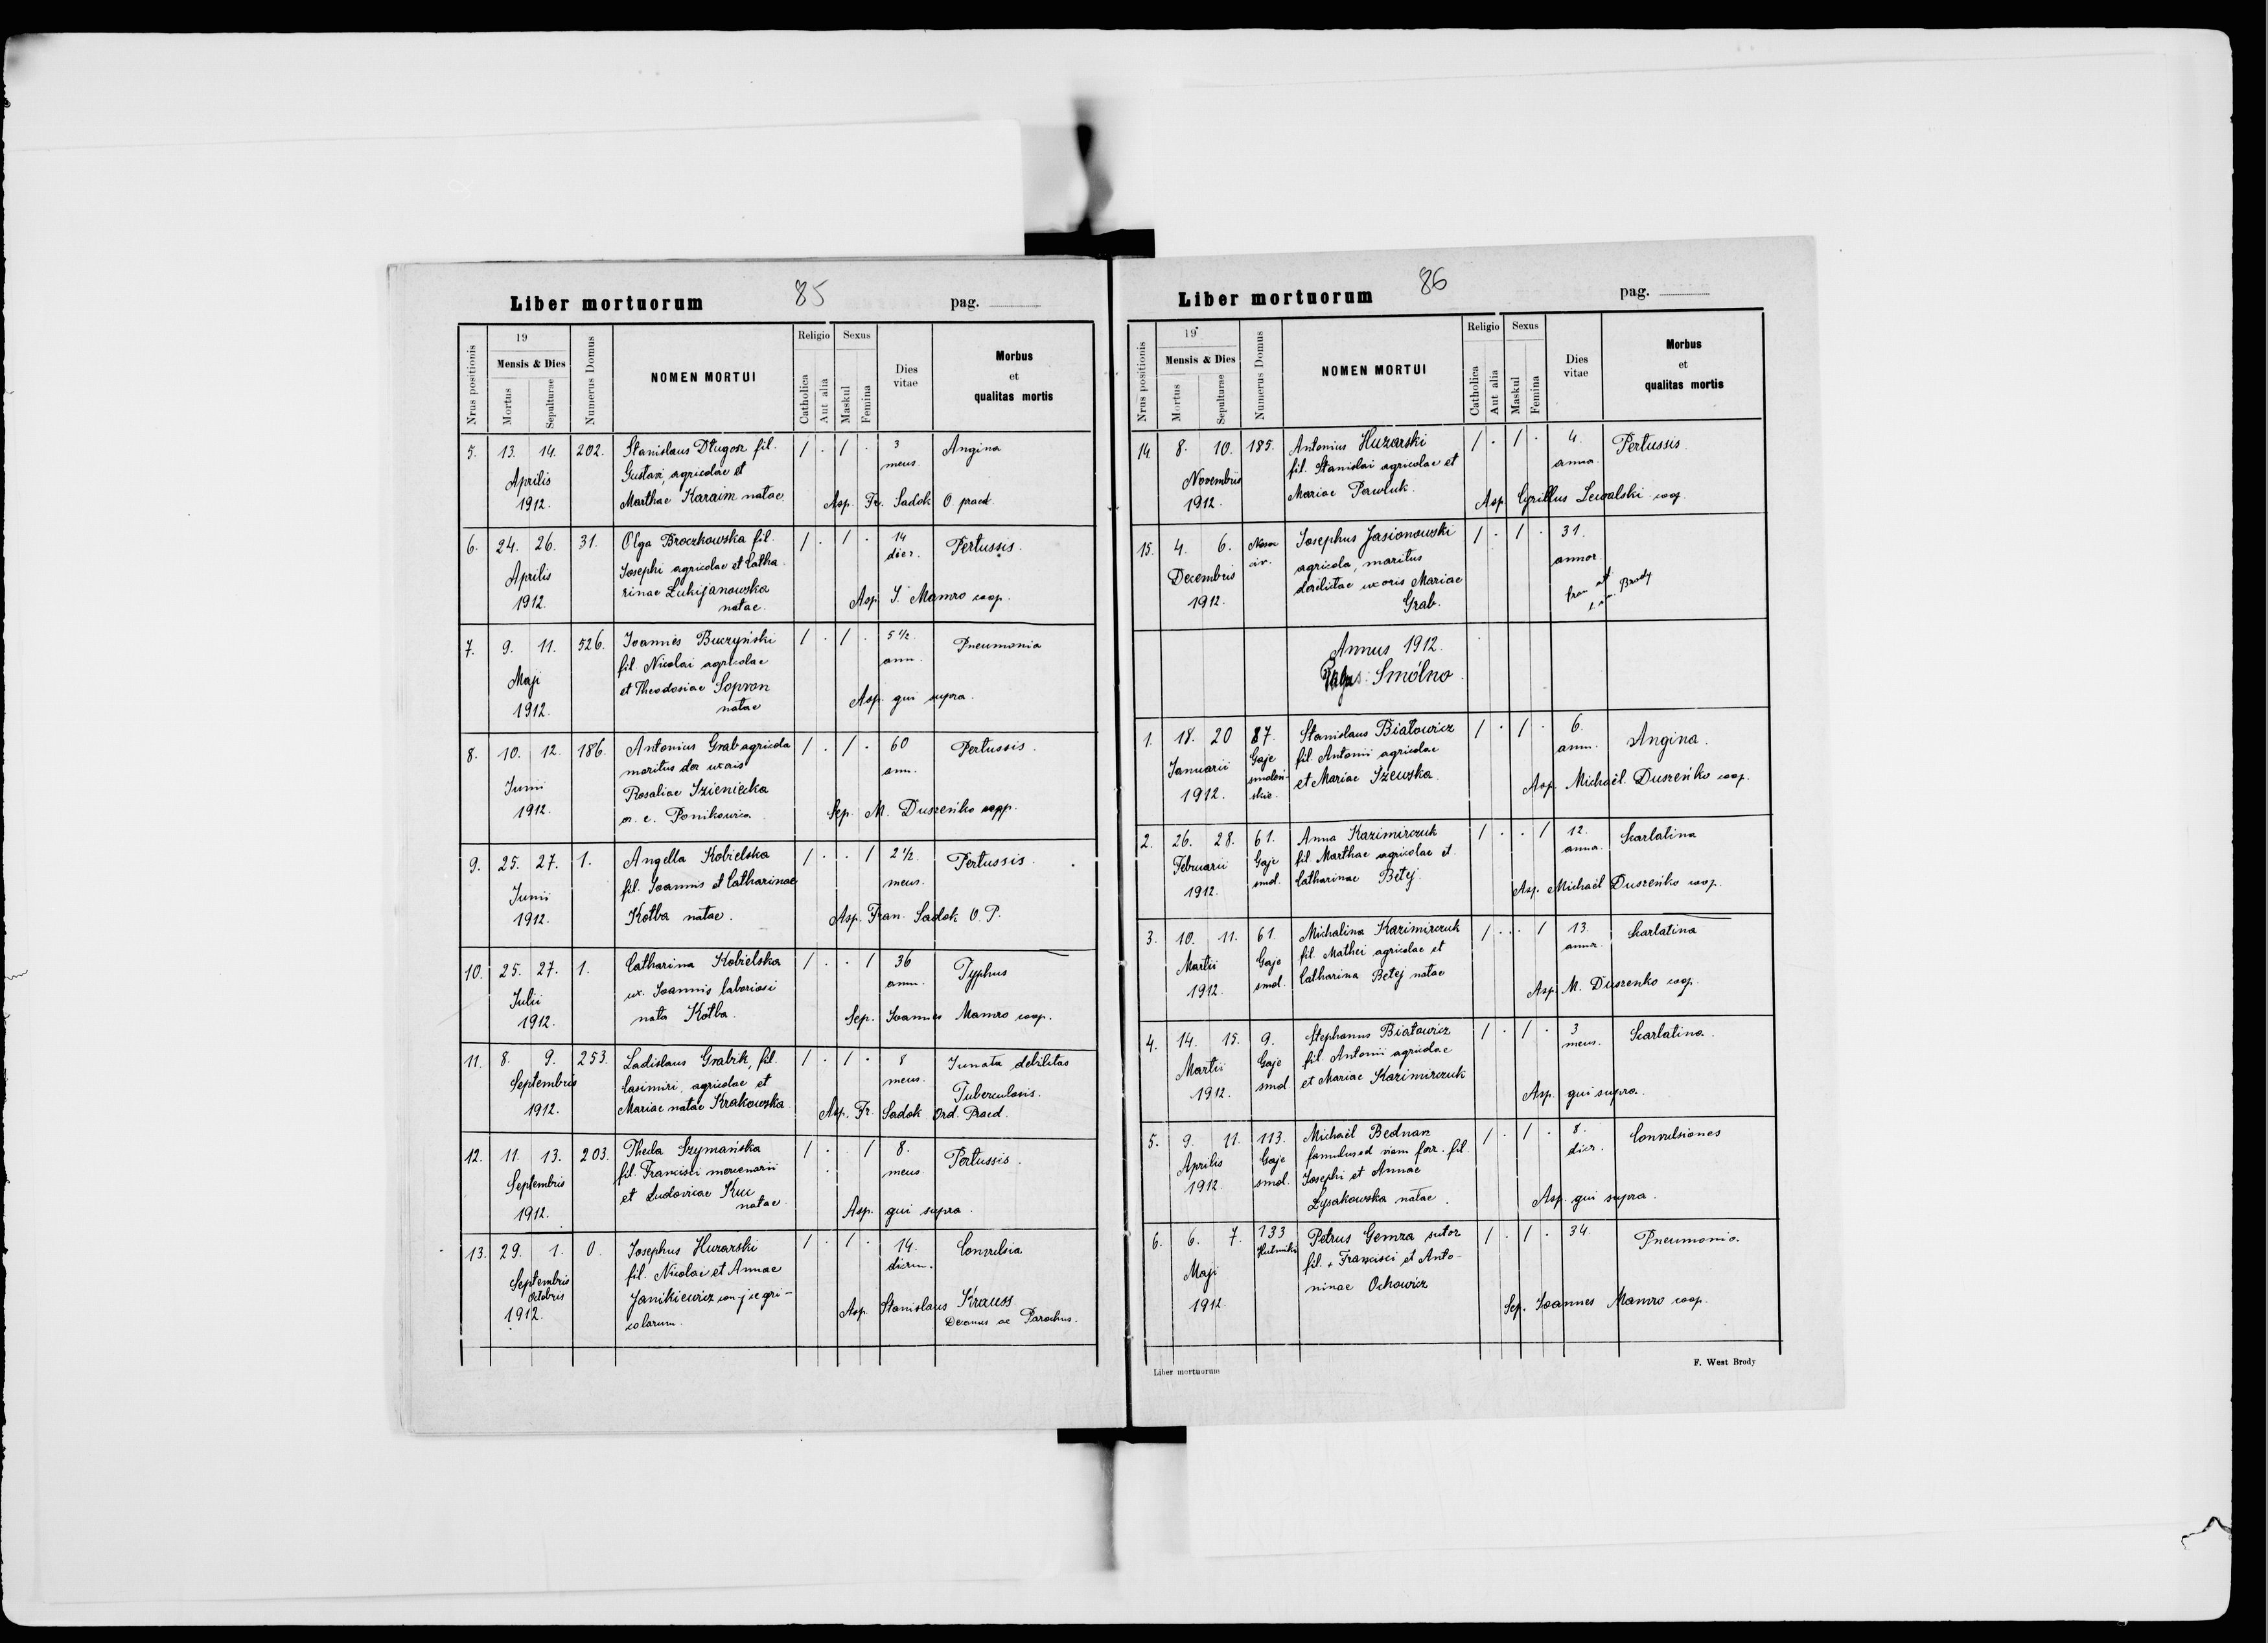 Liber mortuorum 85 pag.
Nrus positionis 19 Mensis & Dies Mortus Sepulturae Numerus Domus NOMEN MORTUI Religio Catholica Aut alia Sexus Maskul Femina Dies vitae Morbus et qualitas mortis
5. 13. 14. 202. Stanislaus Długosz fil. / . / . 3 Angina
Gustavi, agricolae et mens.
Aprilis
1912. Marthae Karaim natae. Asp. Fr. Sadok O. praed.
6. 24. 26. 31. Olga Broczkowska fil. / . / . 14 Pertussis.
Aprilis Josephi agricolae et Catha- dier.
1912. rinae Łukijanowska Asp. J. Mamro coop.
natae.
7. 9. 11. 526. Joannes Buczyński / . / . 5 1/2. Pneumonia
fil. Nicolai agricolae ann.
Maji et Theodosiae Sopron Asp. qui supra.
1912. natae
8. 10. 12. 186. Antonius Grab agricola / . / . 60 Pertussis.
maritus der. uxoris ann.
Junii Rosaliae Szieniecka
1912. Ponikowica. Sep. M. Duszeńko
9. 25. 27. 1. Angella Kobielska / . . / 2 1/2. Pertussis.
Junii fil. Joannis et Catharinae mens.
1912. Kotba natae. Asp. Fran. Sadok O. P.
10. 25. 27. 1. Catharina Kobielska / . . / 36 Typhus
Julii ux. Joannis laboriosi ann.
1912. nata Kotba. Sep. Joannes Mamro coop.
11. 8. 9. 253. Ladislaus Grabik, fil. / . / . 8 Innata debilitas
Septembris Casimiri, agricolae et mens. Tuberculosis.
1912. Mariae natae Krakowska Asp. Fr. Sadok Ord. Praed.
12. 11. 13. 203. Thecla Szymańska / . . / 8. Pertussis.
Septembris fil. Francisci mercenarii mens.
et Ludovicae Kuc
1912. natae. Asp. qui supra.
13. 29. 1. 0. Josephus Huzarski / . / . 14. Convulsia
Septembris fil. Nicolae et Annae dierum.
Octobris Janikiewicz conj. agri-
1912. colarum. Asp. Stanislaus Krauss
Decanus ac Parochus.
Liber mortuorum 86 pag.
Nrus positionis 19 Mensis & Dies Mortus Sepulturae Numerus Domus NOMEN MORTUI Religio Catholica Aut alia Sexus Maskul Femina Dies vitae Morbus et qualitas mortis
14 8. 10. 185. Antonius Huzarski / . / . 4. Pertussis.
Novembris fil. Stanislai agricolae et anna.
1912. Mariae Pawluk. Asp. Cyrillus Lewalski coop.
15. 4. 6. Josephus Jasionowski / . / . 31.
Decembris agricola, maritus annor.
derelictae uxoris Mariae Brody
1912. Grab.
Annus 1912.
Smólno
1. 18. 20 87. Stanislaus Białowicz / . / . 6. Angina.
Januarii Gaje fil. Antonii agricolae ann.
smoleń-
1912. skie. et Mariae Szewska. Asp. Michaël Duszeńko coop.
2. 26. 28. 61. Anna Kazimirczuk / . . / 12. Scarlatina
Februarii Gaje fil. Marthae agricolae et anna.
1912. smol. Catharinae Betej. Asp. Michaël Duszeńko coop.
3. 10. 11. 61. Michalina Kazimirczuk / . . / 13. Scarlatina
Martii Gaje fil. Mathei agricolae et annor.
1912. smol. Catharina Betej natae Asp. M. Duszenko coop.
4. 14. 15. 9. Stephanus Białowicz / . / . 3 Scarlatina.
Martii Gaje fil. Antonii agricolae mens.
1912. smol. et Mariae Kazimirczuk Asp. qui supra.
5. 9. 11. 113. Michaël Bednarz / . / . 8. Convulsiones
Aprilis Gaje famulus ad viam ferr. fil. dier.
1912. smol. Josephi et Annae
Łysakowska natae. Asp. qui supra.
6. 6. 7. 133 Petrus Gemza sutor / . / . 34. Pneumonia.
Hutniki fil. + Francisci et Anto-
Maji ninae Ochowicz
1912. Sep. Joannes Mamro coop.
Liber mortuorum F. West Brody